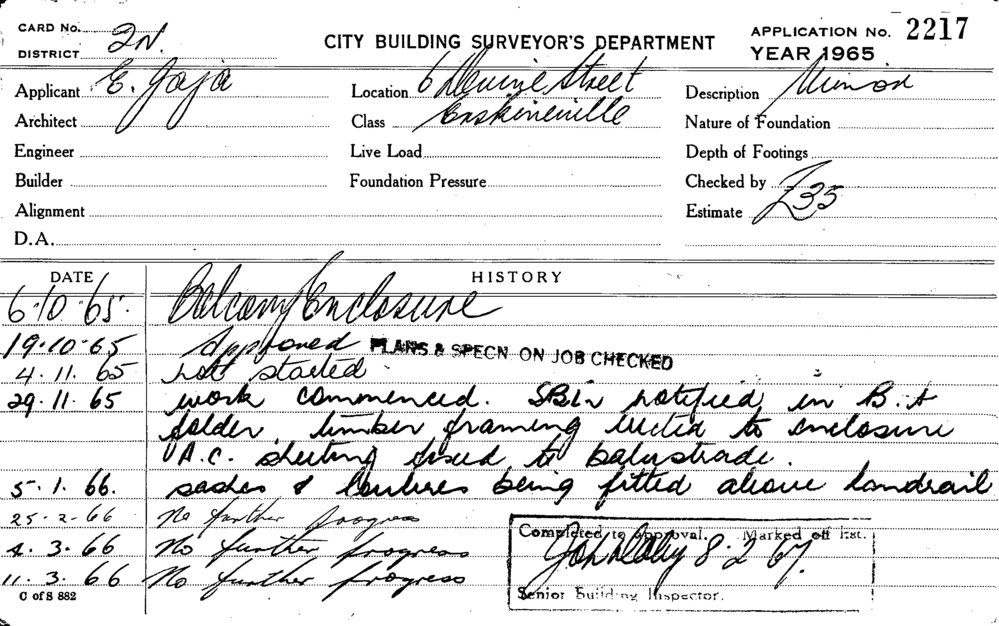 CARD No.
DISTRICT 2N.
CITY BUILDING SURVEYOR'S DEPARTMENT
APPLICATION No. 2217
YEAR 1965
Applicant E. Gaja
Location 6 Devine Street
Description Minor
Architect
Class Erskineville
Nature of Foundation
Engineer
Live Load
Depth of Footings
Builder
Foundation Pressure
Checked by
Alignment
Estimate £35
D.A.
DATE HISTORY
6·10·65. Balcony Enclosure
19·10·65 Approved PLANS & SPECN ON JOB CHECKED
4. 11. 65 not started.
29. 11. 65 work commenced. notified in B.A
folder, timber framing erected to enclosure
A.C. sheeting fixed to balustrade.
5. 1. 66. sashes & louvres being fitted above handrail
25-2-66 No further progress
4. 3. 66 No further progress
11. 3. 66 No further progress
Completed to Approval. Marked off list.
8·2·67.
Senior Building Inspector.
C of S 882